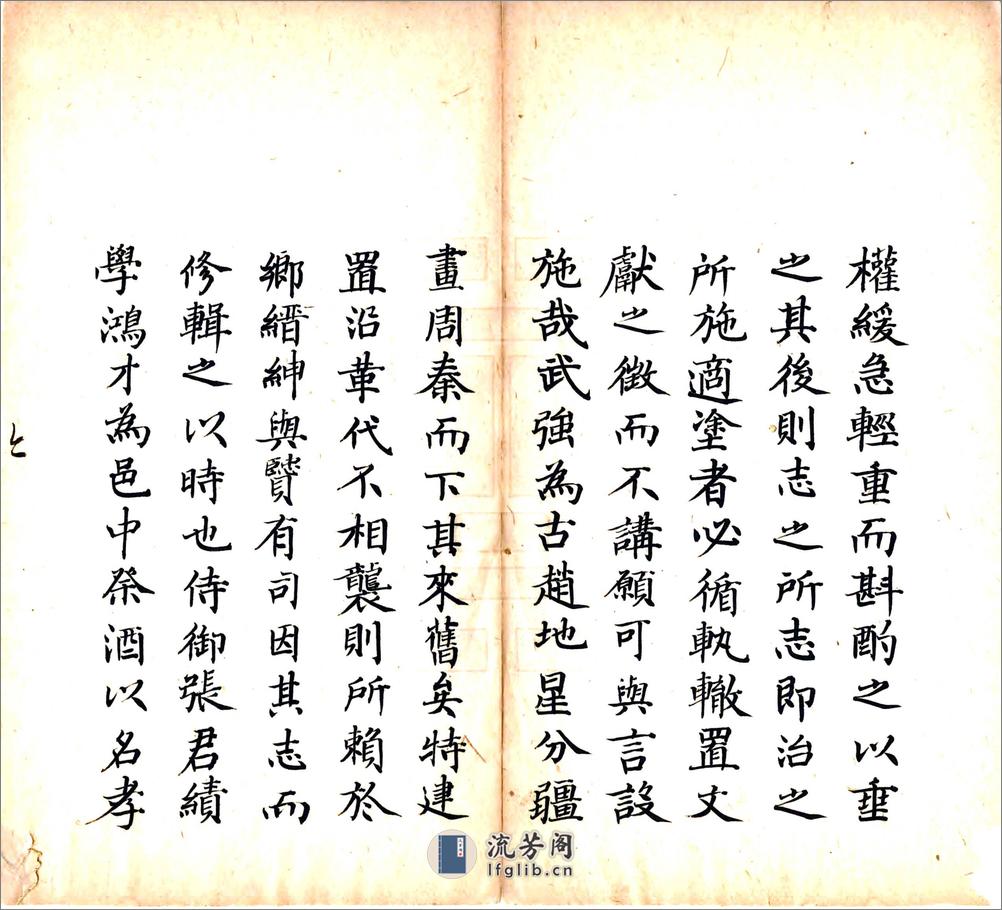 權緩急輕重而斟酌之以垂
之其後則志之所志即治之
所施適塗者必循執轍置文
獻之徵而不講願可與言設
施哉武強為古趙地星分疆
畫周秦而下其來舊矣特建
置沿革代不相襲則所賴於
鄉縉紳與賢有司因其志而
修輯之以時也侍御張君績
學鴻才為邑中祭酒以名孝
流芳阁
lfglib.cn